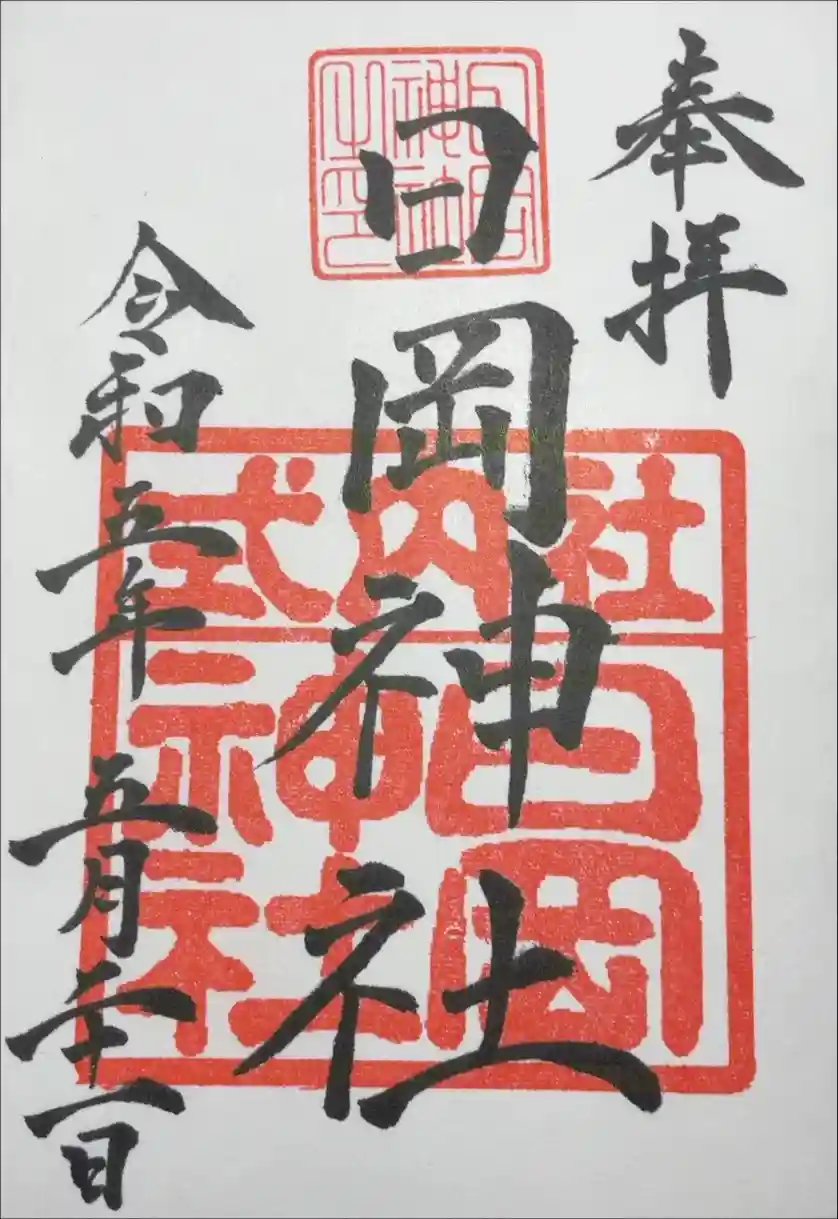 奉拝
日岡神社
令和五年 五月二十一日
日岡
神社
之印
式内社
日岡
神社